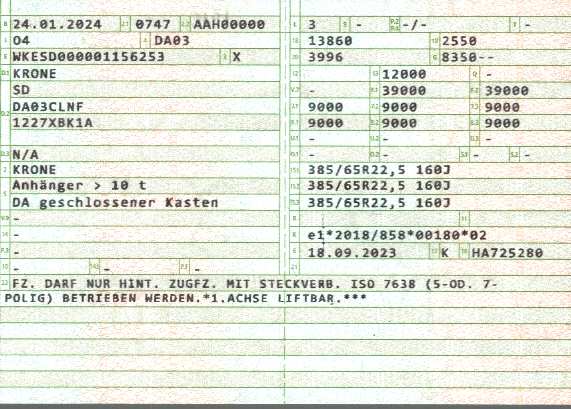 24.01.2024 0747 AAH00000
04 DA03
WKESD000001156253 X
KRONE
SD
DA03CLNF
1227XBK1A
N/A
KRONE
Anhänger > 10 t
DA geschlossener Kasten
-
-
-
- - -
3 - -/- -
13860 2550
3996 8350--
12000 -
- 39000 39000
9000 9000 9000
9000 9000 9000
- - -
- - - -
385/65R22,5 160J
385/65R22,5 160J
385/65R22,5 160J
e1*2018/858*00180*02
18.09.2023 K HA725280
FZ. DARF NUR HINT. ZUGFZ. MIT STECKVERB. ISO 7638 (5-OD. 7-
POLIG) BETRIEBEN WERDEN.*1.ACHSE LIFTBAR.***